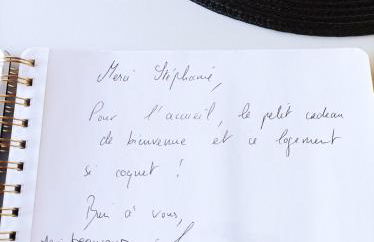 Merci Stéphanie,
Pour l'accueil, le petit cadeau
de bienvenue et ce logement
si coquet !
Bien à vous,